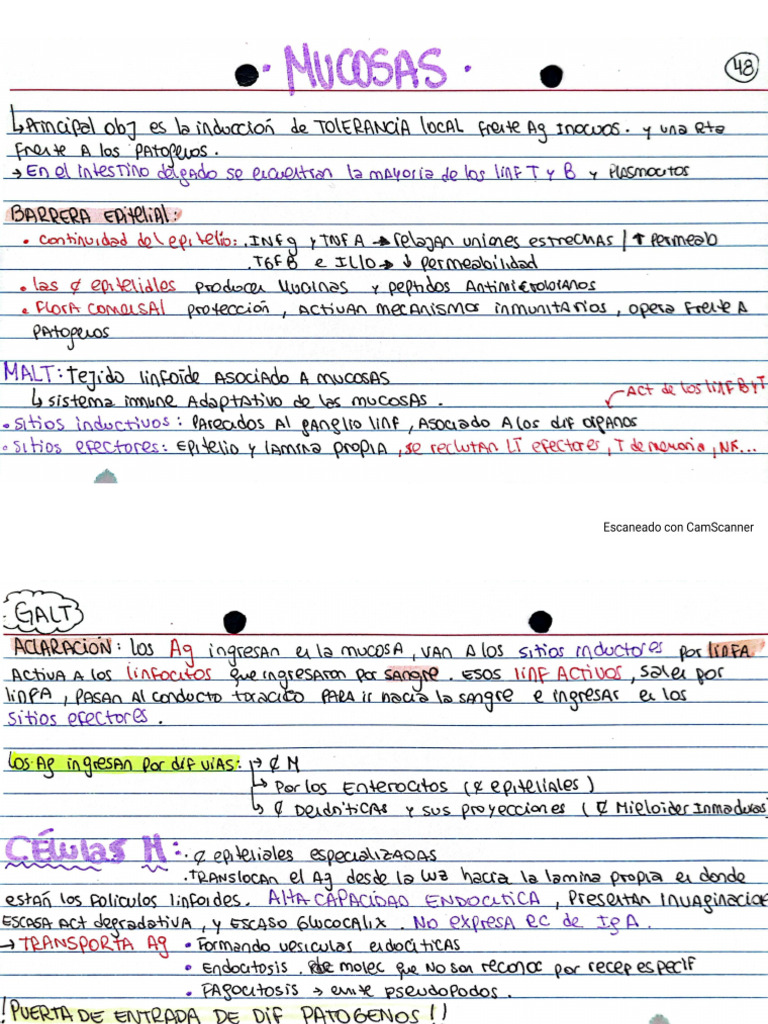 · MUCOSAS ·
48
↳ Principal obj es la inducción de TOLERANCIA LOCAL frente Ag Inocuos. y una Rta
frente A los patogenos.
→ En el intestino delgado se encuentran la mayoria de los linf T y B y plasmocitos
BARRERA EPITELIAL:
• continuidad del epitelio: . INFg y TNFA → relajan uniones estrechas / ↑ permeab
. TGFB e IL10 → ↓ permeabilidad
• las ¢ epiteliales producen Mucinas y peptidos Antimicrobianos
• Flora comensal protección, activan mecanismos inmunitarios, opera frente A
patogenos
MALT: Tejido linfoide asociado a mucosas
↳ sistema inmune Adaptativo de las mucosas.
Act de los linf B y T
• sitios inductivos: Parecidos Al ganglio linf, asociado A los dif organos
• sitios efectores: Epitelio y lamina propia, se reclutan LT efectores, T de memoria, NK...
Escaneado con CamScanner
GALT
ACLARACIÓN: los Ag ingresan en la mucosa, van A los sitios inductores por linfa
activa a los linfocitos que ingresaron por sangre. Esos linf Activos, salen por
linfa, pasan Al conducto toracico para ir hacia la sangre e ingresar en los
sitios efectores.
los Ag ingresan por dif vias: → ¢ M
↳ Por los Enterocitos (¢ epiteliales)
↳ ¢ Dendríticas y sus proyecciones (¢ Mieloides Inmaduras)
CÉlulas M: . ¢ epiteliales especializadas
. Translocan el Ag desde la luz hacia la lamina propia en donde
están los foliculos linfoides. Alta capacidad endocitica, presentan invaginacione
escasa act degradativa, y escaso Glucocalix. No expresa RC de IgA.
→ TRANSPORTA Ag • Formando vesiculas endociticas
• Endocitosis de molec que no son reconoc por recep especif
• Fagocitosis → emite pseudopodos.
¡PUERTA DE ENTRADA DE DIF PATOGENOS!!